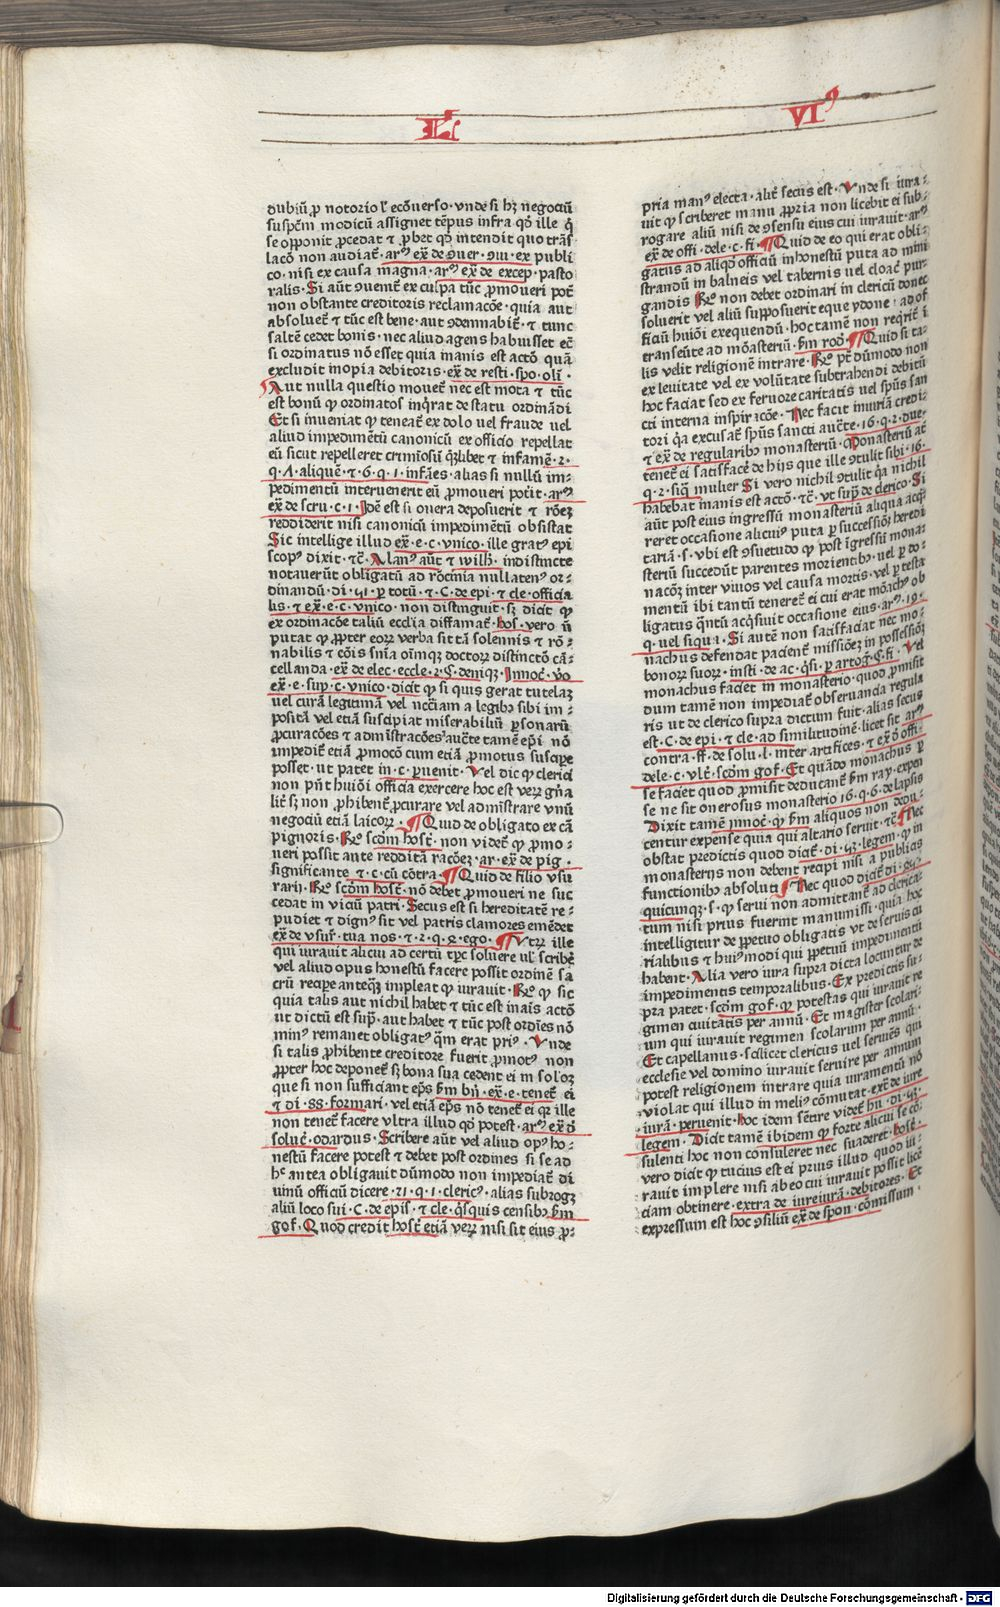 L
VI⁹
dubiū ꝓ notorio ł ecōuerso · vnde si hȝ negociū
suspēm modicū assignet tēpus infra qd̄ ille q̄
se opponit ꝓcedat ⁊ ꝓbet qd̄ intendit quo trās
lacō non audiat̄ · arᵍ ex̄ de ꝯuer · ꝯiu · ex publi
co · nisi ex causa magna · arᵍ ex̄ de excep · pasto
ralis · Si aūt ꝯuemt̄ ex culpa tūc ꝓmoueri pot̄
non obstante creditoris reclamacōe · quia aut
absoluet̄ ⁊ tūc est bene · aut ꝯdemnabit̄ · ⁊ tunc
saltē cedet bonis · nec aliud agens habuisset ec̄
si ordinatus nō esset quia inanis est actō quā
excludit inopia debitoris · ex̄ de resti · spo · oli ·
Aut nulla questio mouet̄ nec est mota ⁊ tūc
est bonū ꝙ ordinatos inq̄rat de statu ordinādi
Et si inueniat ꝙ teneat̄ ex dolo uel fraude uel
aliud impedimētū canonicū ex officio repellat
eū sicut repelleret crimīosū q̄rlibet ⁊ infamē · 2 ·
q · 1 · aliquē · ⁊ 6 · q · 1 · infāes · alias si nullū im-
pedimentū interuenerit eū ꝓmoueri potit · arᵍ
ex̄ de scru · c · 1 · Idē est si onera deposuerit ⁊ rōeȝ
reddiderit nisi canonicū impedimētū obsistat
Sic intellige illud ex̄ · e · c · vnico · ille gratꝰ epi
scopꝰ dixit · ⁊c̄ · Alanꝰ aūt ⁊ willꝫ · indistincte
notauerūt obligatū ad rōcinia nullatenꝰ or-
dinandū · di · 51 · ꝑ totū · ⁊ · C · de epi · ⁊ cle · officia
lis · ⁊ ex̄ · e · c · vnico · non distinguit · sȝ dicit ꝙ
ex ordinacōe taliū ecclīa diffamat̄ · hos · vero ū
putat ꝙ ꝓpter eorꝝ verba sit tā solennis ⁊ rō-
nabilis ⁊ cōis snīa oīmqȝ doctorꝝ distinctō cā-
cellanda · ex̄ de elec · eccle · 2 · C · deniqȝ · Innoc̄ · v̄o
ex̄ · e · sup̄ · c · vnico · dicit ꝙ si quis gerat tutelaȝ
uel curā legitimā vel nccīam a legibꝫ sibi im-
positā vel etiā suscipiat miserabiliū ꝑsonarū
ꝓcuracōes ⁊ admīstracōes auct̄e tamē ep̄i nō
impedit̄ etiā ꝓmocō cum etiā ꝓmotus suscipe
posset · ut patet in · c · ꝑuenit · Vel dic ꝙ clerici
non pn̄t huiōi officia exercere hoc est verꝝ gn̄a
lit̄ sȝ non ꝓhibent̄ ꝓcurare vel admīstrare vnū
negociū etiā laicorꝝ · ¶ Quid de obligato ex cā
pignoris · Rᵒ scdm host̄ · non videt̄ ꝙ ꝓmo-
ueri possit ante redditā racōeȝ · ar · ex̄ de pig ·
significante ⁊ · c · cū cōtra · ¶ Quid de filio vsu
rarij · Rᵒ scdm host̄ · nō debet ꝓmoueri ne suc
cedat in viciū patri · Secus est si hereditatē re-
pudiet ⁊ dignꝰ sit vel patris clamores emēdet
ex̄ de vsur̄ · tua nos · ⁊ · 2 · q · 2 · ego · ¶ Vtrꝝ ille
qui iurauit alicui ad certū tp̄c soluere ul̄ scribē
vel aliud opus honestū facere possit ordinē sa
crū recipe anteqȝ impleat ꝙ iurauit · Rᵒ ꝙ sic
quia talis aut nichil habet ⁊ tūc est inais actō
ut dictū est sup̄ · aut habet ⁊ tūc post ordīes nō
minꝰ remanet obligatꝰ q̄m erat priꝰ · Vnde
si talis ꝓhibente creditore fuerit ꝓmotꝰ non
ꝓpter hoc deponet̄ sȝ bona sua cedent ei in soloȝ
que si non sufficiant ep̄s ẜm bn̄ · ex̄ · e · tenet̄ ei
⁊ di · 88 · formari · vel etiā ep̄s nō tenet̄ ei qꝛ ille
non tenet̄ facere vltra illud qd̄ potest · arᵍ ex̄ d̄
soluc̄ · odardus · Scribere aūt vel aliud opꝰ ho-
nestū facere potest ⁊ debet post ordines si se ad
hᶜ antea obligauit dūmodo non impediat̄ di
uinū officiū dicere · 21 · q · 1 · clericꝰ · alias subrogȝ
aliū loco sui · C · de epis̄ · ⁊ cle · q̄squis censibꝫ ẜm
gof · Quod credit host̄ etiā verꝝ nisi sit eius ꝓ-
pria manꝰ electa · alit̄ secus est · Vnde si iura-
uit ꝙ scriberet manu ꝓpria non licebit ei sub-
rogare aliū nisi de ꝯsensu eius cui iurauit · arᵍ
ex̄ de offi · dele · c · fi · ¶ Quid de eo qui erat obli-
gatus ad aliqd̄ officiū inhonestū puta ad mini
strandū in balneis vel tabernis uel cloac̄ pur-
gandis Rᵒ non debet ordinari in clericū donec
soluerit vel aliū supposuerit eque ydone · ad of
ficiū huiōi exequendū · hoc tamē non reqrit̄ ī
transeūte ad mōasteriū · ẜm rod̄ · ¶ Quid si ta-
lis velit religionē intrare · Rᵒ pt̄ dūmodo non
ex leuitate vel ex volūtate subtrahendi debitū
hoc faciat sed ex feruore caritatis uel spūs san
cti interna inspiracōe · Nec facit iniuriā credi-
tori q̄a excusat̄ spūs sancti auct̄e · 16 · q · 2 · due-
⁊ ex̄ de regularibꝫ monasteriū · Monasteriū at̄
tenet̄ ei satisfacē de hijs que ille ꝯtulit sibi · 16 ·
q · 2 · siq̄ mulier Si vero nichil ꝯtulit q̄a nichil
habebat inanis est actō · ⁊c̄ · vt sup̄ de clerico · Si
aūt post eius ingressū monasteriū aliqua acq̄
reret occasione alicuiꝰ puta ꝑ successiōȝ heredi
tariā · s · vbi est ꝯsuetudo ꝙ post īgressū monas
steriū succedūt parentes morientibꝫ · uel ꝑ do-
nacōȝ inter viuos vel causa mortis · vel ꝑ testa
mentū ibi tantū teneret̄ ei cui erat mōachꝰ ob
ligatus q̄ntū acq̄siuit occasione eius · arᵍ · 19 ·
q · uel siqua · Si autē non satisfaciat nec mo-
nachus defendat pacient̄ missiōeȝ in possessiōȝ
bonorꝝ suorꝝ · insti · de ac · q̄si · ꝑ artoḡ · C · fi · Vel
monachus faciet in monasterio · quod ꝓmisit
dum tamē non impediat̄ obseruancia regula
ris ut de clerico supra dictum fuit · alias secus
est · C · de epi · ⁊ cle · ad similitudinē · licet sit arᵍ
contra · ff · de solu · l · inter artifices · ⁊ ex̄ d̄ offi-
dele · c · vlt̄ · scdm gof · Et quādo monachus ꝑ
se faciet quod ꝓmisit deducant̄ ẜm ray · expen
se ne sit onerosus monasterio 16 · q · 6 · de lapsis
Dixit tamē innoc̄ · ꝙ ẜm aliquos non dedu-
centur expense quia qui altario seruit · ⁊c̄ · ¶ Nec
obstat predictis quod dicit̄ · di · 53 · legem · ꝙ in
monasterijs non debent recipi nisi a publicis
functionibꝫ absoluti ¶ Nec quod dicit̄ di · 53 ·
quicunqȝ · s · ꝙ serui non admittant̄ ad clerica-
tum nisi prius fuerint manumissi · quia hoc
intelligitur de ꝑpetuo obligatis vt de seruis cu
rialibus ⁊ huiꝰmodi qui ꝑpetuū impedimentū
habent · Alia vero iura supra dicta locuntur de
impedimentis temporalibus · Ex predictis su-
pra patet · scdm gof · ꝙ potestas qui iurauit re
gimen ciuitatis per annū · Et magister scolari-
um qui iurauit regimen scolarum per annū ·
Et capellanus · scilicet clericus uel seruiēs qui
ecclesie vel domino iurauit seruire per annum
potest religionem intrare quia iuramentū nō
violat qui illud in meliꝰ cōmutat · ex̄ de iure
iurā · peruenit · hoc idem sētire videt̄ hu · di · 53 ·
legem · Dicit tamē ibidem ꝙ forte alicui se cō-
sulenti hoc non consuleret nec suaderet · host̄ ·
vero dicit ꝙ tucius est ei prius illud quod iu-
rauit implere nisi ab eo cui iurauit possit licē
ciam obtinere · extra de iureiurā · debitores · Et
expressum est hoc ꝯsiliū ex̄ de spon · cōmissum ·
Digitalisierung gefördert durch die Deutsche Forschungsgemeinschaft - DFG